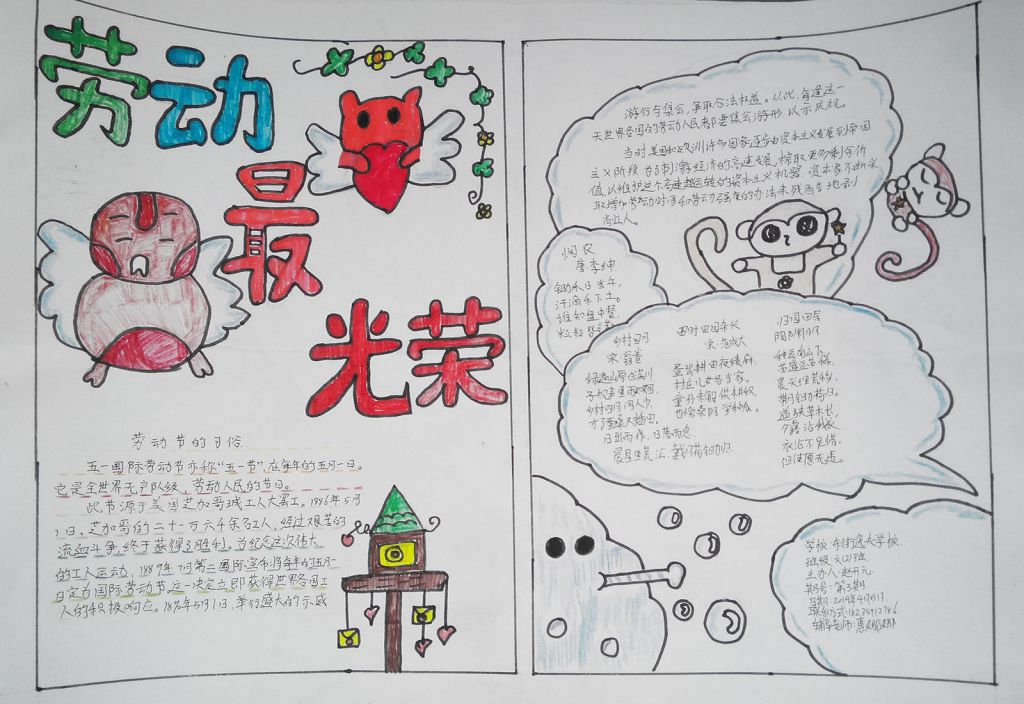 劳动
最
光荣
劳动节的习俗
五一国际劳动节亦称“五一节”,在每年的五月一日。
它是全世界无产阶级、劳动人民的节日。
此节源于美国芝加哥城工人大罢工。1886年5月
1日,芝加哥的二十一万六千余名工人,经过艰苦的
流血斗争,终于获得了胜利。为纪念这次伟大
的工人运动,1889年7月第二国际宣布将每年的五月一
日定为国际劳动节这一决定立即获得世界各国工
人的积极响应。1890年5月1日,举行盛大的示威
游行与集会,争取合法权益。从此,每逢这一
天世界各国的劳动人民都要集会游形以示庆祝。
当时美国和欧洲许多国家逐步由资本主义发展到帝国
主义阶段 为了刺激经济的高速发展,榨取更多剩余价
值,以维护这个高速运转的资本主义机器 资本家不断采
取增加劳动时间和劳动强度的办法来残酷地剥
削工人。
悯农
唐 李绅
锄禾日当午,
汗滴禾下土。
谁知盘中餐,
粒粒皆
乡村四月
宋 翁卷
绿遍山原白满川
子规声里雨如烟
乡村四月闲人少,
才了蚕桑又插田。
日出而作,日落而息
晨星
四时田园杂兴
宋 范成大
昼出耕田夜绩麻,
村庄儿女各当家。
童孙未解供耕织,
也傍桑阴学种瓜。
归园田居
陶渊明
种豆南山下,
草盛豆苗稀。
晨兴理荒秽,
带月荷锄归。
道狭草木长,
夕露沾我衣
衣沾不足惜,
但使愿无违。
学校:
班级:
主办人:赵开元
期号:第3期
日期:2019年4月5日
联系方式:
辅导老师: